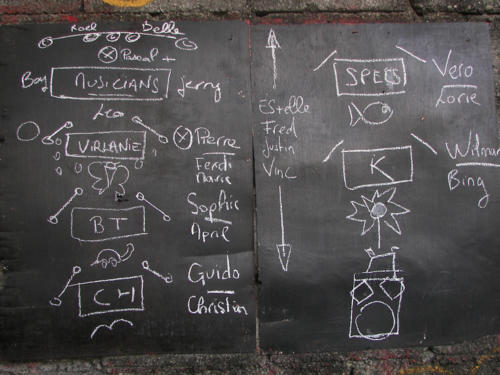 Rael Belle
Pascal +
Boy MUSICIANS Jerry
Leo
VIRLANIE Pierre
Ferdi
Marie
Sophie
BT April
Guido
CH Christian
SPECS Veso
Lorie
Estelle
Fred
Justin
Vinc
K Wilmar
Bing